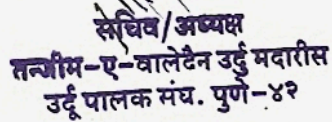 सचिव/अध्यक्ष
तन्जीम-ए-वालेदैन उर्दु मदारीस
उर्दू पालक संघ. पुणे-४२